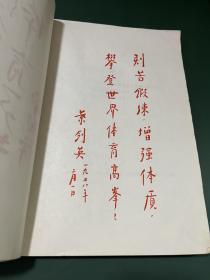 刻苦锻炼，增强体质，
攀登世界体育高峰！
叶剑英
一九七八年
一月一日